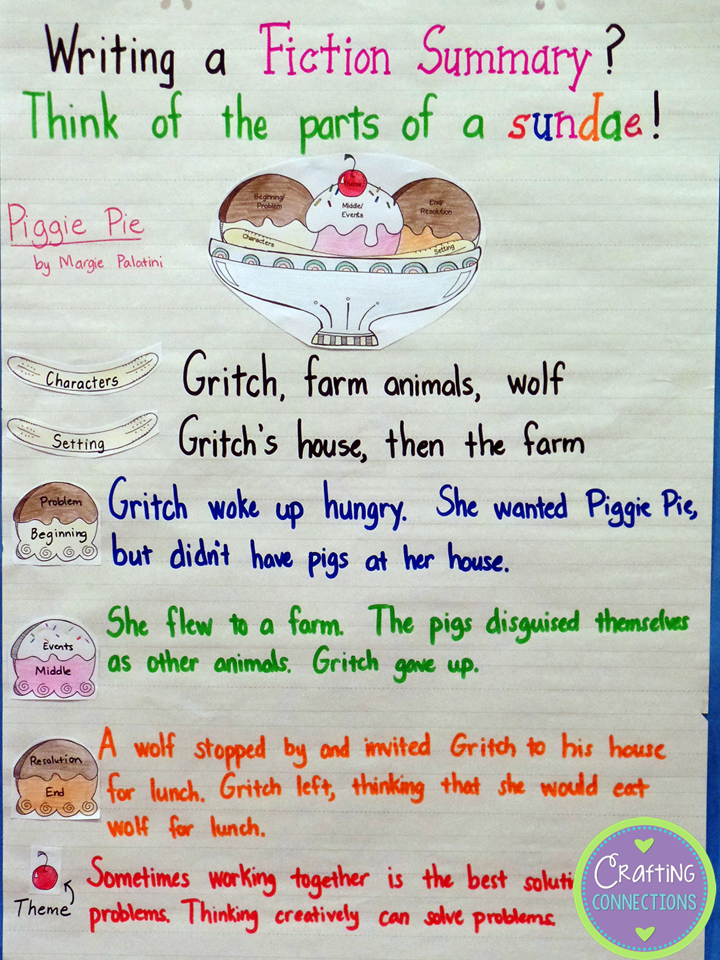 Writing a Fiction Summary?
Think of the parts of a sundae!
Piggie Pie
by Margie Palatini
Beginning/
Problem
Middle/
Events
End/
Resolution
Characters
Setting
Characters
Gritch, farm animals, wolf
Setting
Gritch's house, then the farm
Problem
Beginning
Gritch woke up hungry. She wanted Piggie Pie,
but didn't have pigs at her house.
Events
Middle
She flew to a farm. The pigs disguised themselves
as other animals. Gritch gave up.
Resolution
End
A wolf stopped by and invited Gritch to his house
for lunch. Gritch left, thinking that she would eat
wolf for lunch.
Theme
Sometimes working together is the best soluti
problems. Thinking creatively can solve problems.
CRAFTING
CONNECTIONS